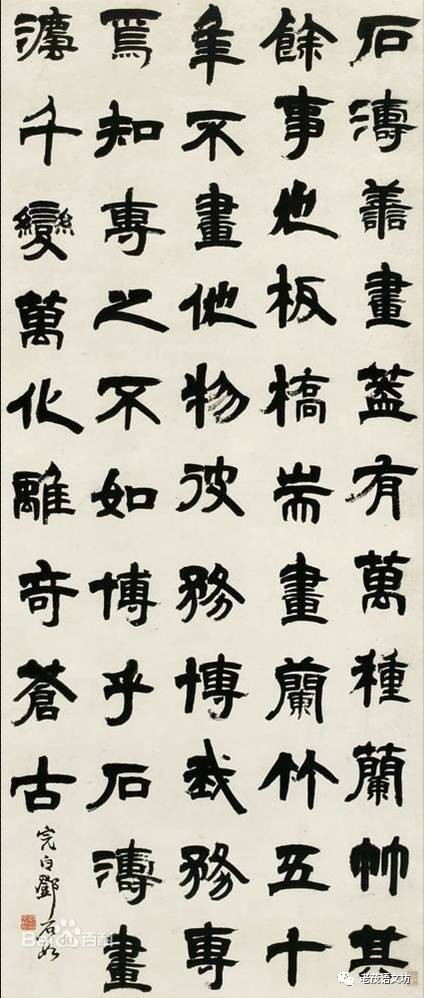 石濤善畫蓋有萬種蘭竹其
餘事也板橋耑畫蘭竹五十
年不畫他物彼務博我務專
焉知專之不如博乎石濤畫
灋千變萬化離奇蒼古
完白鄧石如
Baidu百科
老茂语文坊